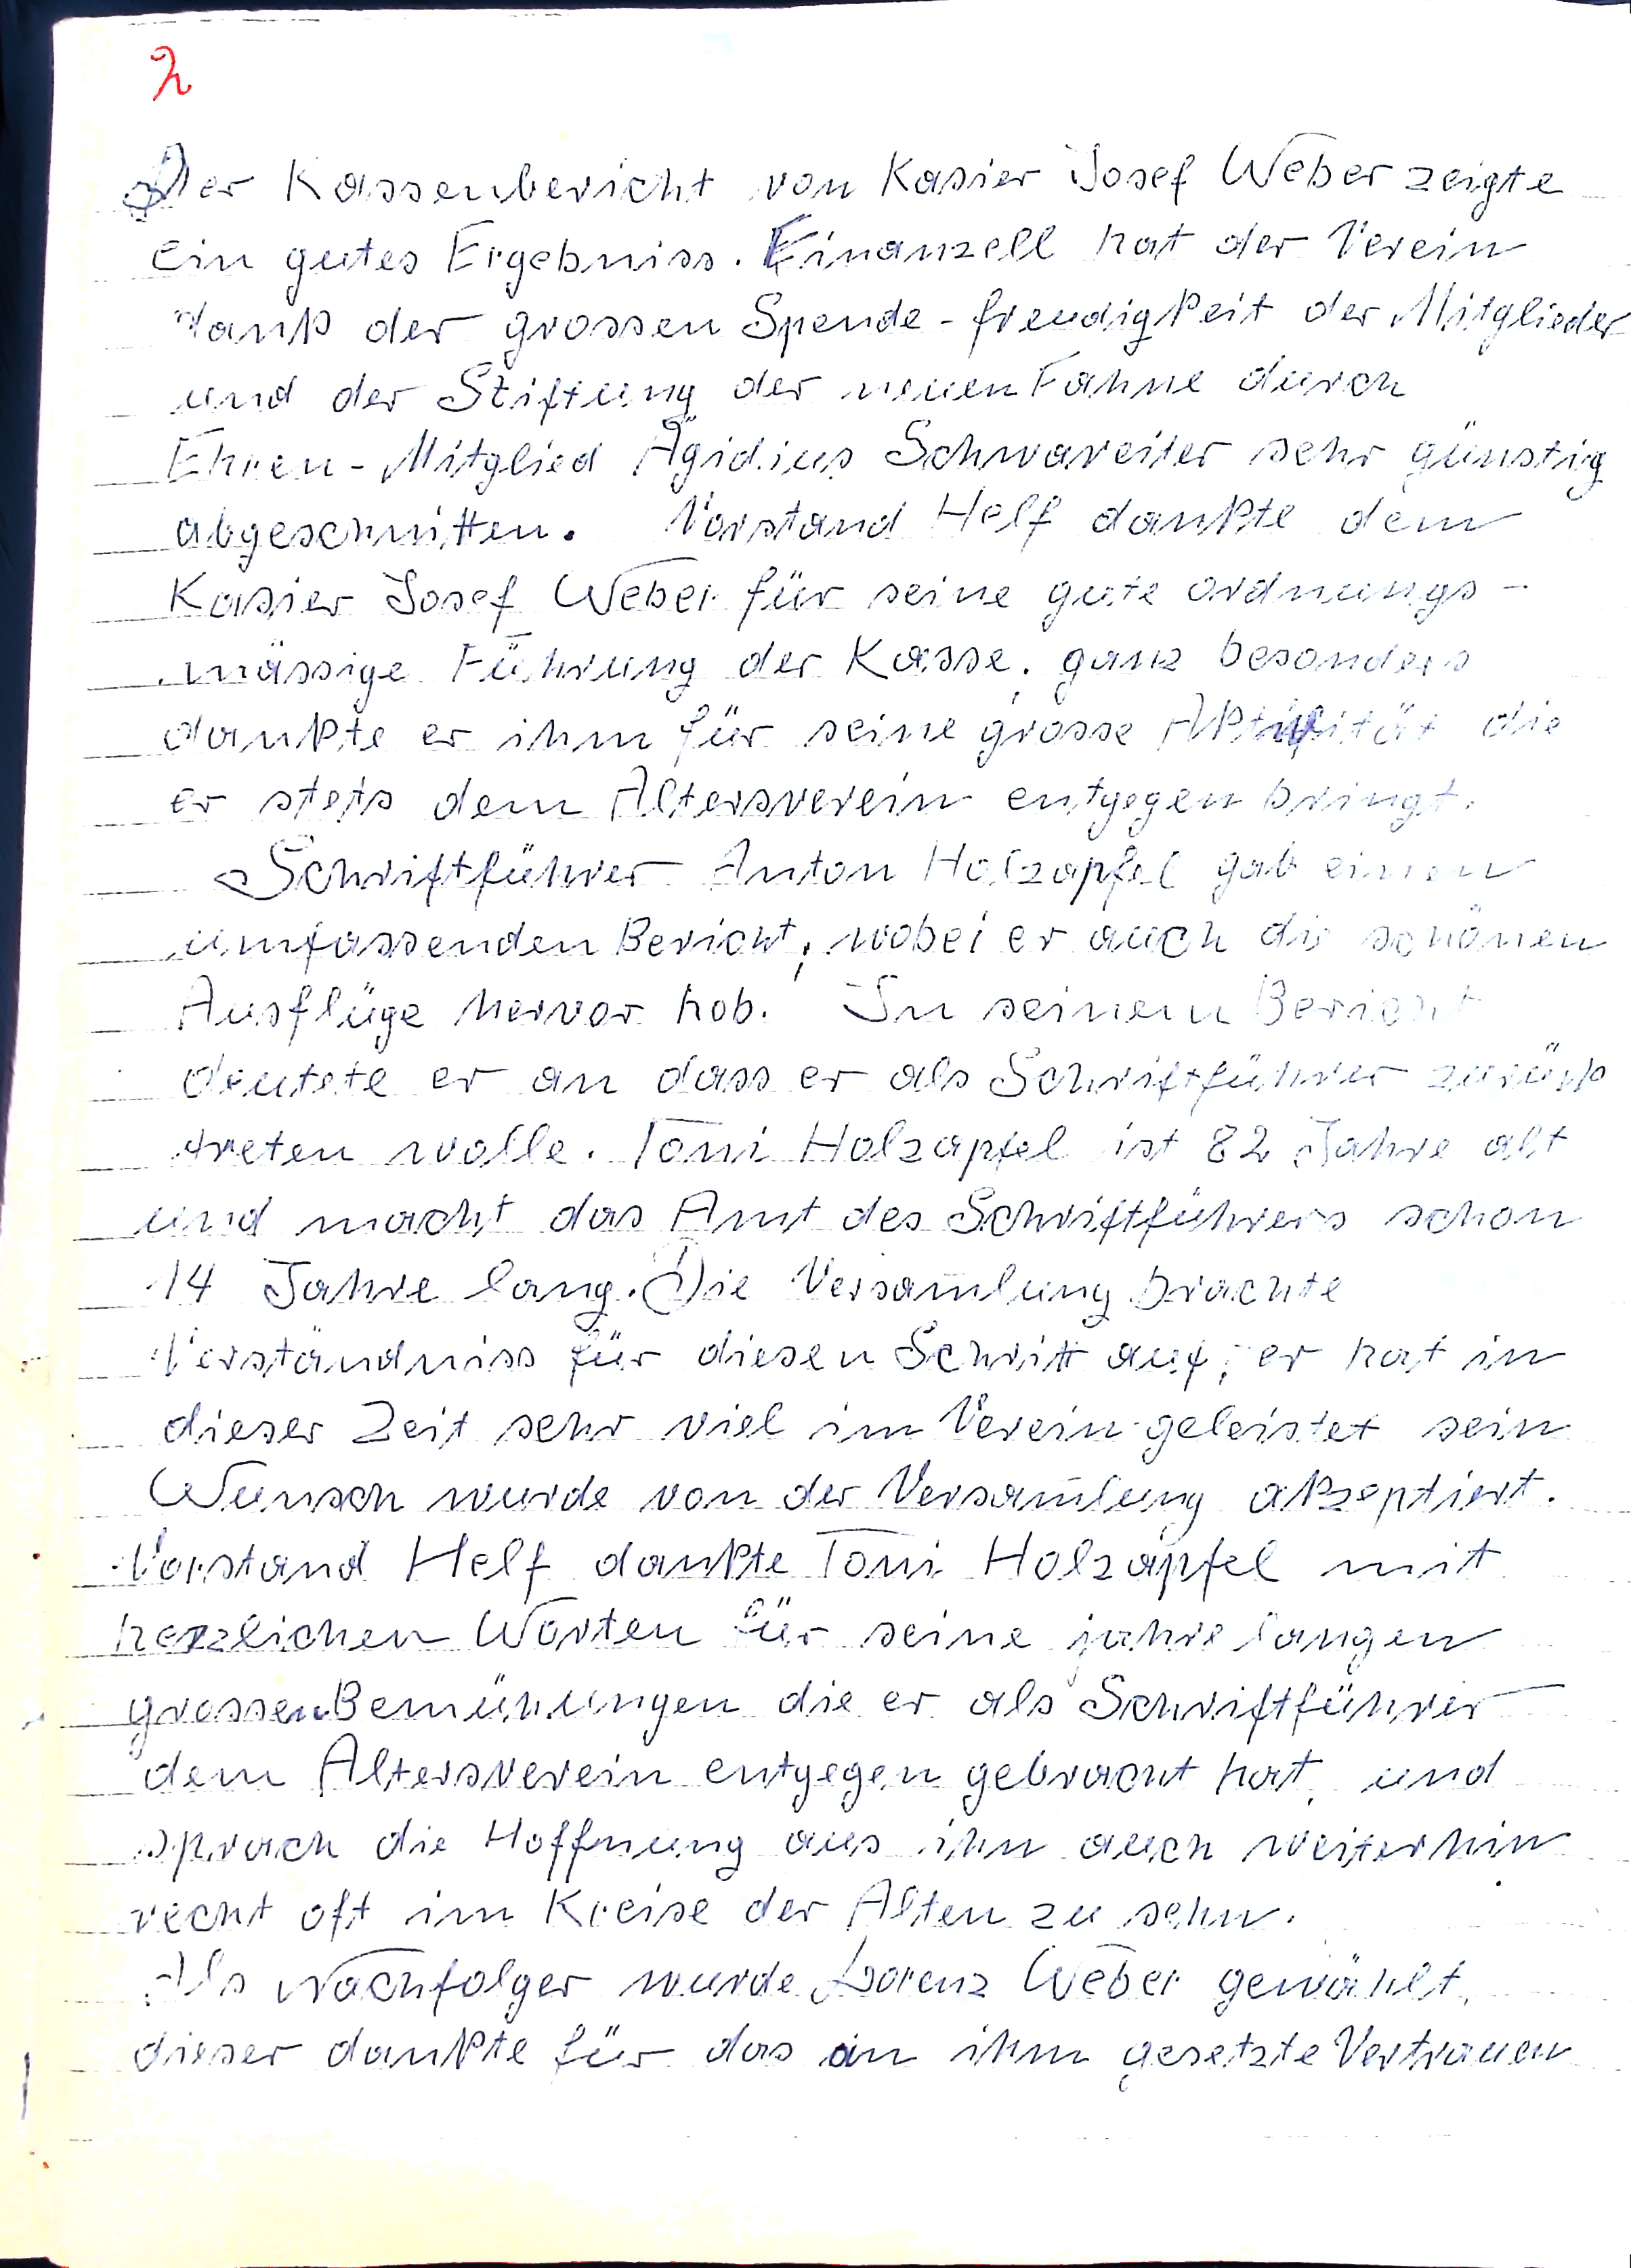 2
Der Kassenbericht von Kasier Josef Weber zeigte
ein gutes Ergebniss. Finanzell hat der Verein
dank der grossen Spende-freudigkeit der Mitglieder
und der Stiftung der neuen Fahne durch
Ehren-Mitglied Ägidius sehr günstig
abgeschnitten. Vorstand Helf dankte dem
Kasier Josef Weber für seine gute ordnungs-
mässige Führung der Kasse, ganz besonders
dankte er ihm für seine grosse Aktivität die
er stets dem Altersverein entgegen bringt.
Schriftführer Anton Holzapfel gab einen
umfassenden Bericht, wobei er auch die schönen
Ausflüge hervor hob. In seinem Bericht
deutete er an dass er als Schriftführer zurük
treten wolle. Toni Holzapfel ist 82 Jahre alt
und macht das Amt des Schriftführers schon
14 Jahre lang. Die Versam̄lung brachte
Verständniss für diesen Schritt auf, er hat in
dieser Zeit sehr viel im Verein geleistet sein
Wunsch wurde von der Versam̄lung akzeptiert.
Vorstand Helf dankte Toni Holzapfel mit
herzlichen Worten für seine jahre langen
grossen Bemühungen die er als Schriftführer
dem Altersverein entgegen gebracht hat, und
sprach die Hoffnung aus ihn auch weiterhin
recht oft im Kreise der Alten zu sehn.
Als Nachfolger wurde Lorenz Weber gewählt,
dieser dankte für das an ihm gesetzte Vertrauen